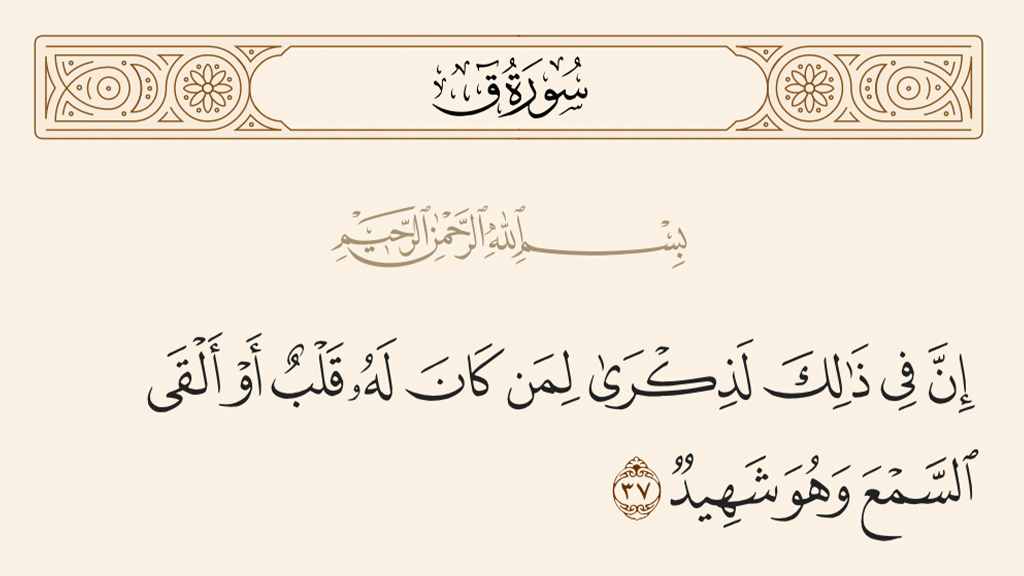 سُورَةُ قٓ
بِسْمِ ٱللَّهِ ٱلرَّحْمَٰنِ ٱلرَّحِيمِ
إِنَّ فِى ذَٰلِكَ لَذِكْرَىٰ لِمَن كَانَ لَهُۥ قَلْبٌ أَوْ أَلْقَى
ٱلسَّمْعَ وَهُوَ شَهِيدٌ ٣٧